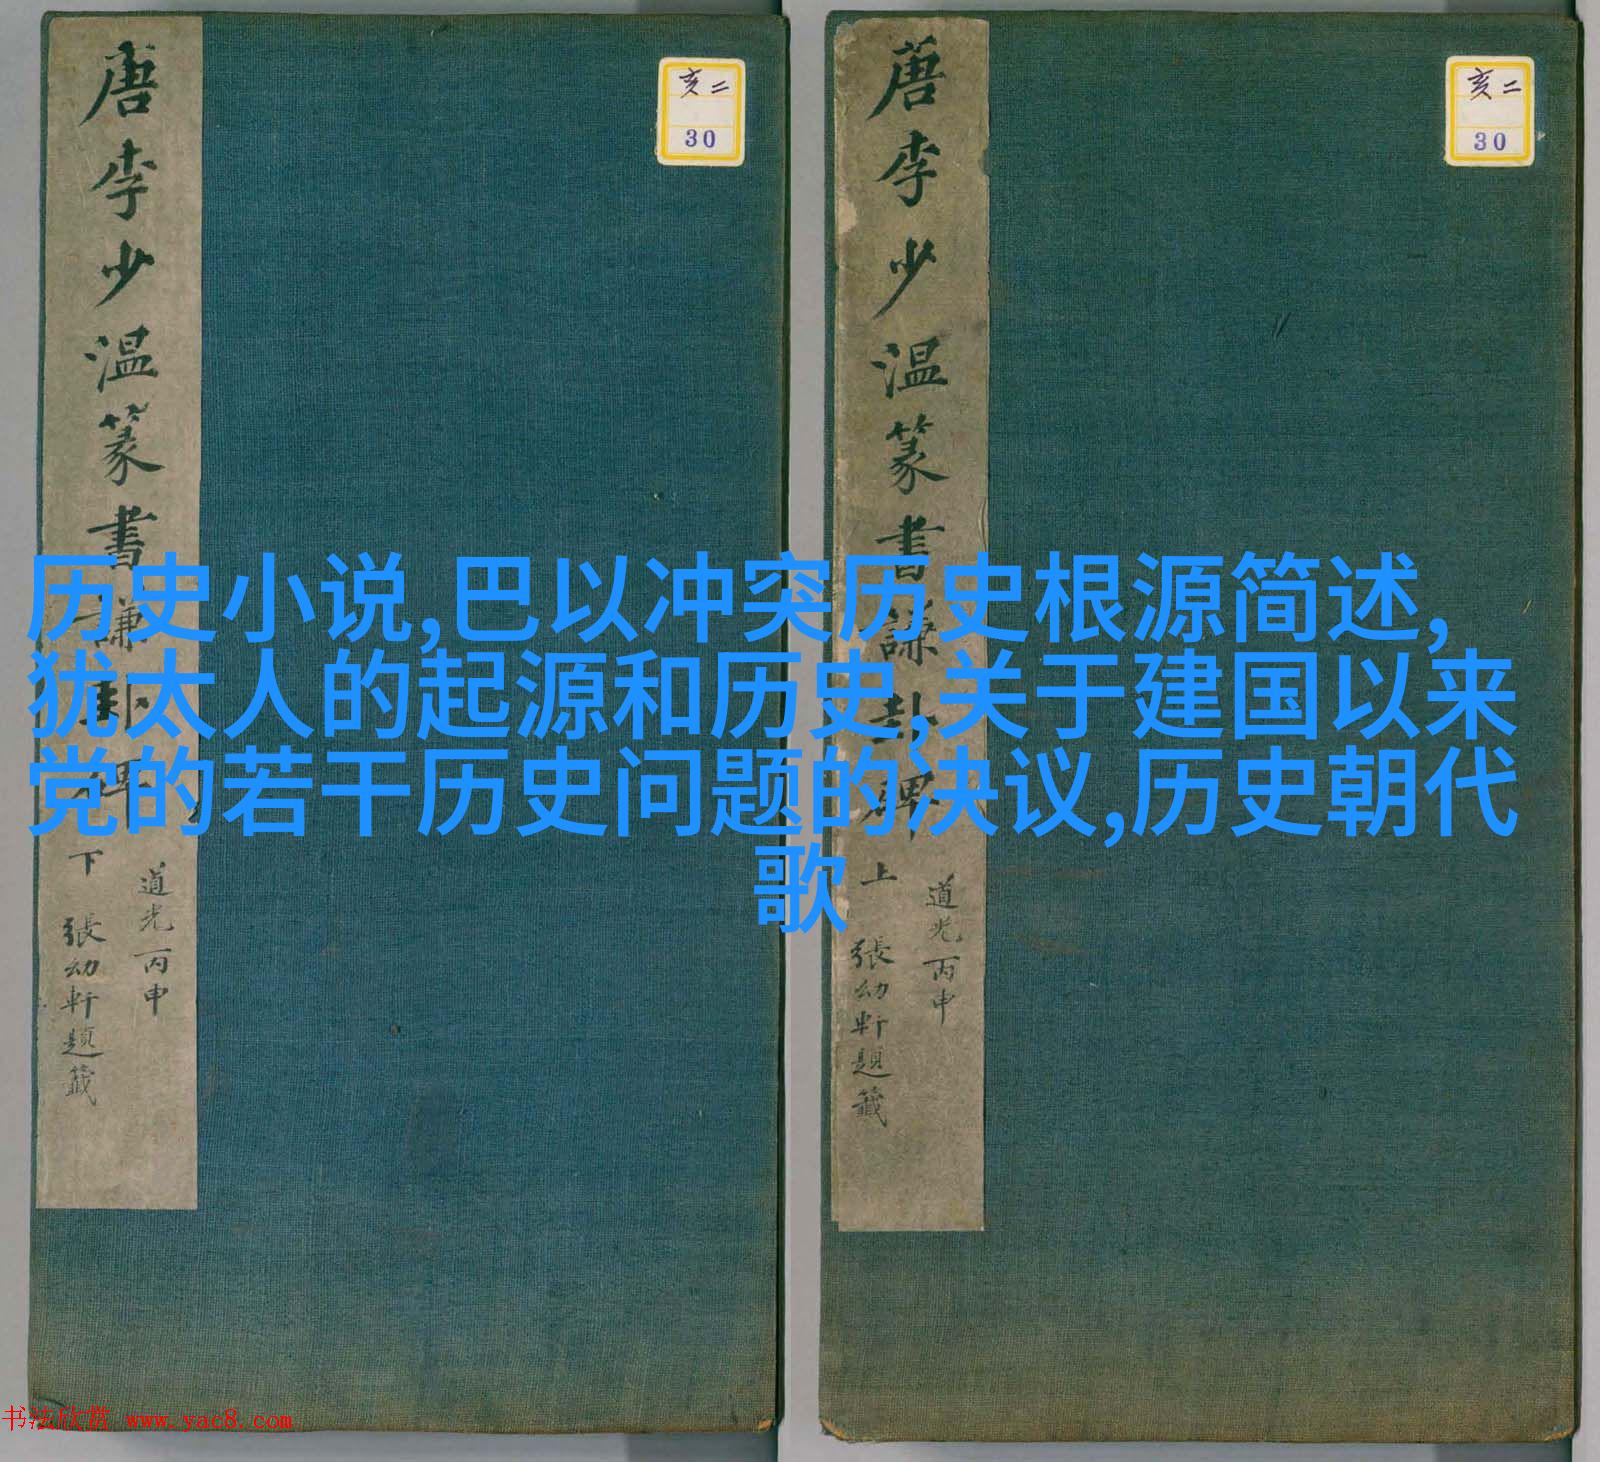 唐李少温篆書謙卦碑
下
道光丙申
張幼軒題籤
亥二
30
唐李少温篆書謙卦碑
上
道光丙申
張幼軒題籤
亥二
30
历史小说,巴以冲突历史根源简述,
犹太人的起源和历史,关于建国以来
党的若干历史问题的决议,历史朝代
歌
书法欣赏 www.yac8.com